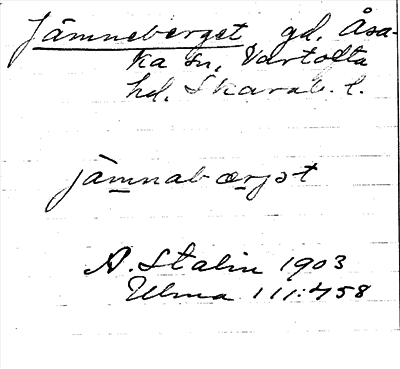 Jämneberget gd, Åsa-
ka sn, Vartofta
hd, Skarab. l.
jämnabærjət
A. Stalin 1903
Ulma 111:458